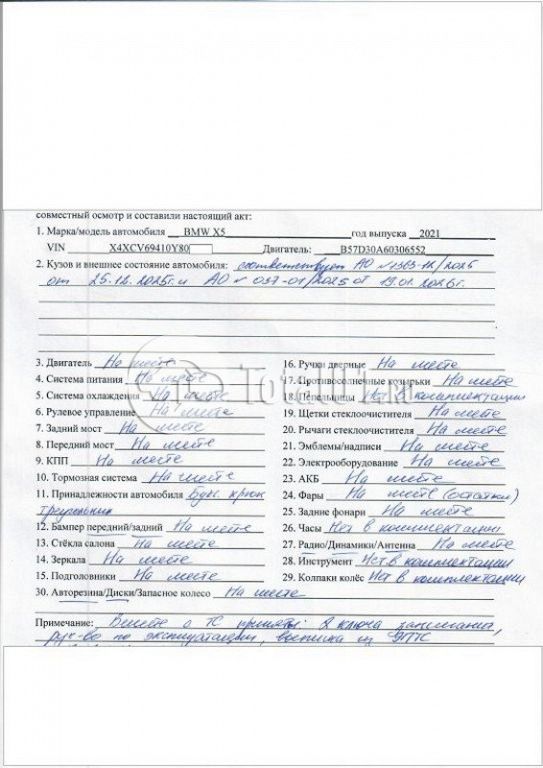 совместный осмотр и составили настоящий акт:
1. Марка/модель автомобиля BMW X5 год выпуска 2021
VIN X4XCV69410Y80 Двигатель: B57D30A60306552
2. Кузов и внешнее состояние автомобиля: соответствует АО №1363-12/2025
от 25.12.2025г. и АО № 037-01/2025 от 19.01.2026г.
3. Двигатель На месте
4. Система питания На месте
5. Система охлаждения На месте
6. Рулевое управление На месте
7. Задний мост На месте
8. Передний мост На месте
9. КПП На месте
10. Тормозная система На месте
11. Принадлежности автомобиля Букс. крюк
треугольник
12. Бампер передний/задний На месте
13. Стёкла салона На месте
14. Зеркала На месте
15. Подголовники На месте
16. Ручки дверные На месте
17. Противосолнечные козырьки На месте
18. Пепельницы Нет в комплектации
19. Щетки стеклоочистителя На месте
20. Рычаги стеклоочистителя На месте
21. Эмблемы/надписи На месте
22. Электрооборудование На месте
23. АКБ На месте
24. Фары На месте (остатки)
25. Задние фонари На месте
26. Часы Нет в комплектации
27. Радио/Динамики/Антенна На месте
28. Инструмент Нет в комплектации
29. Колпаки колёс Нет в комплектации
30. Авторезина/Диски/Запасное колесо На месте
Примечание: Вместе с ТС приняты: 2 ключа зажигания,
рук-во по эксплуатации, выписка из ЭПТС